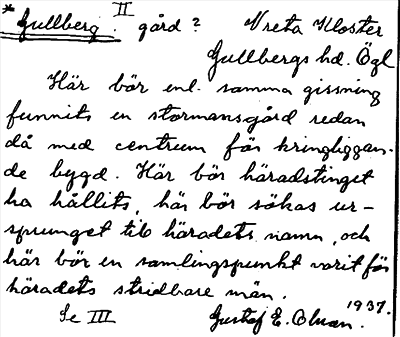 *Gullberg. II gård? Vreta Kloster
Gullbergs hd. Ögl
Här bör enl. samma gissning
funnits en stormansgård redan
då med centrum för kringliggan-
de bygd. Här bör häradstinget
ha hållits, här bör sökas ur-
sprunget til häradets namn, och
här bör en samlingspunkt varit för
häradets stridbare män.
1937.
Se III Gustaf E. Olman.